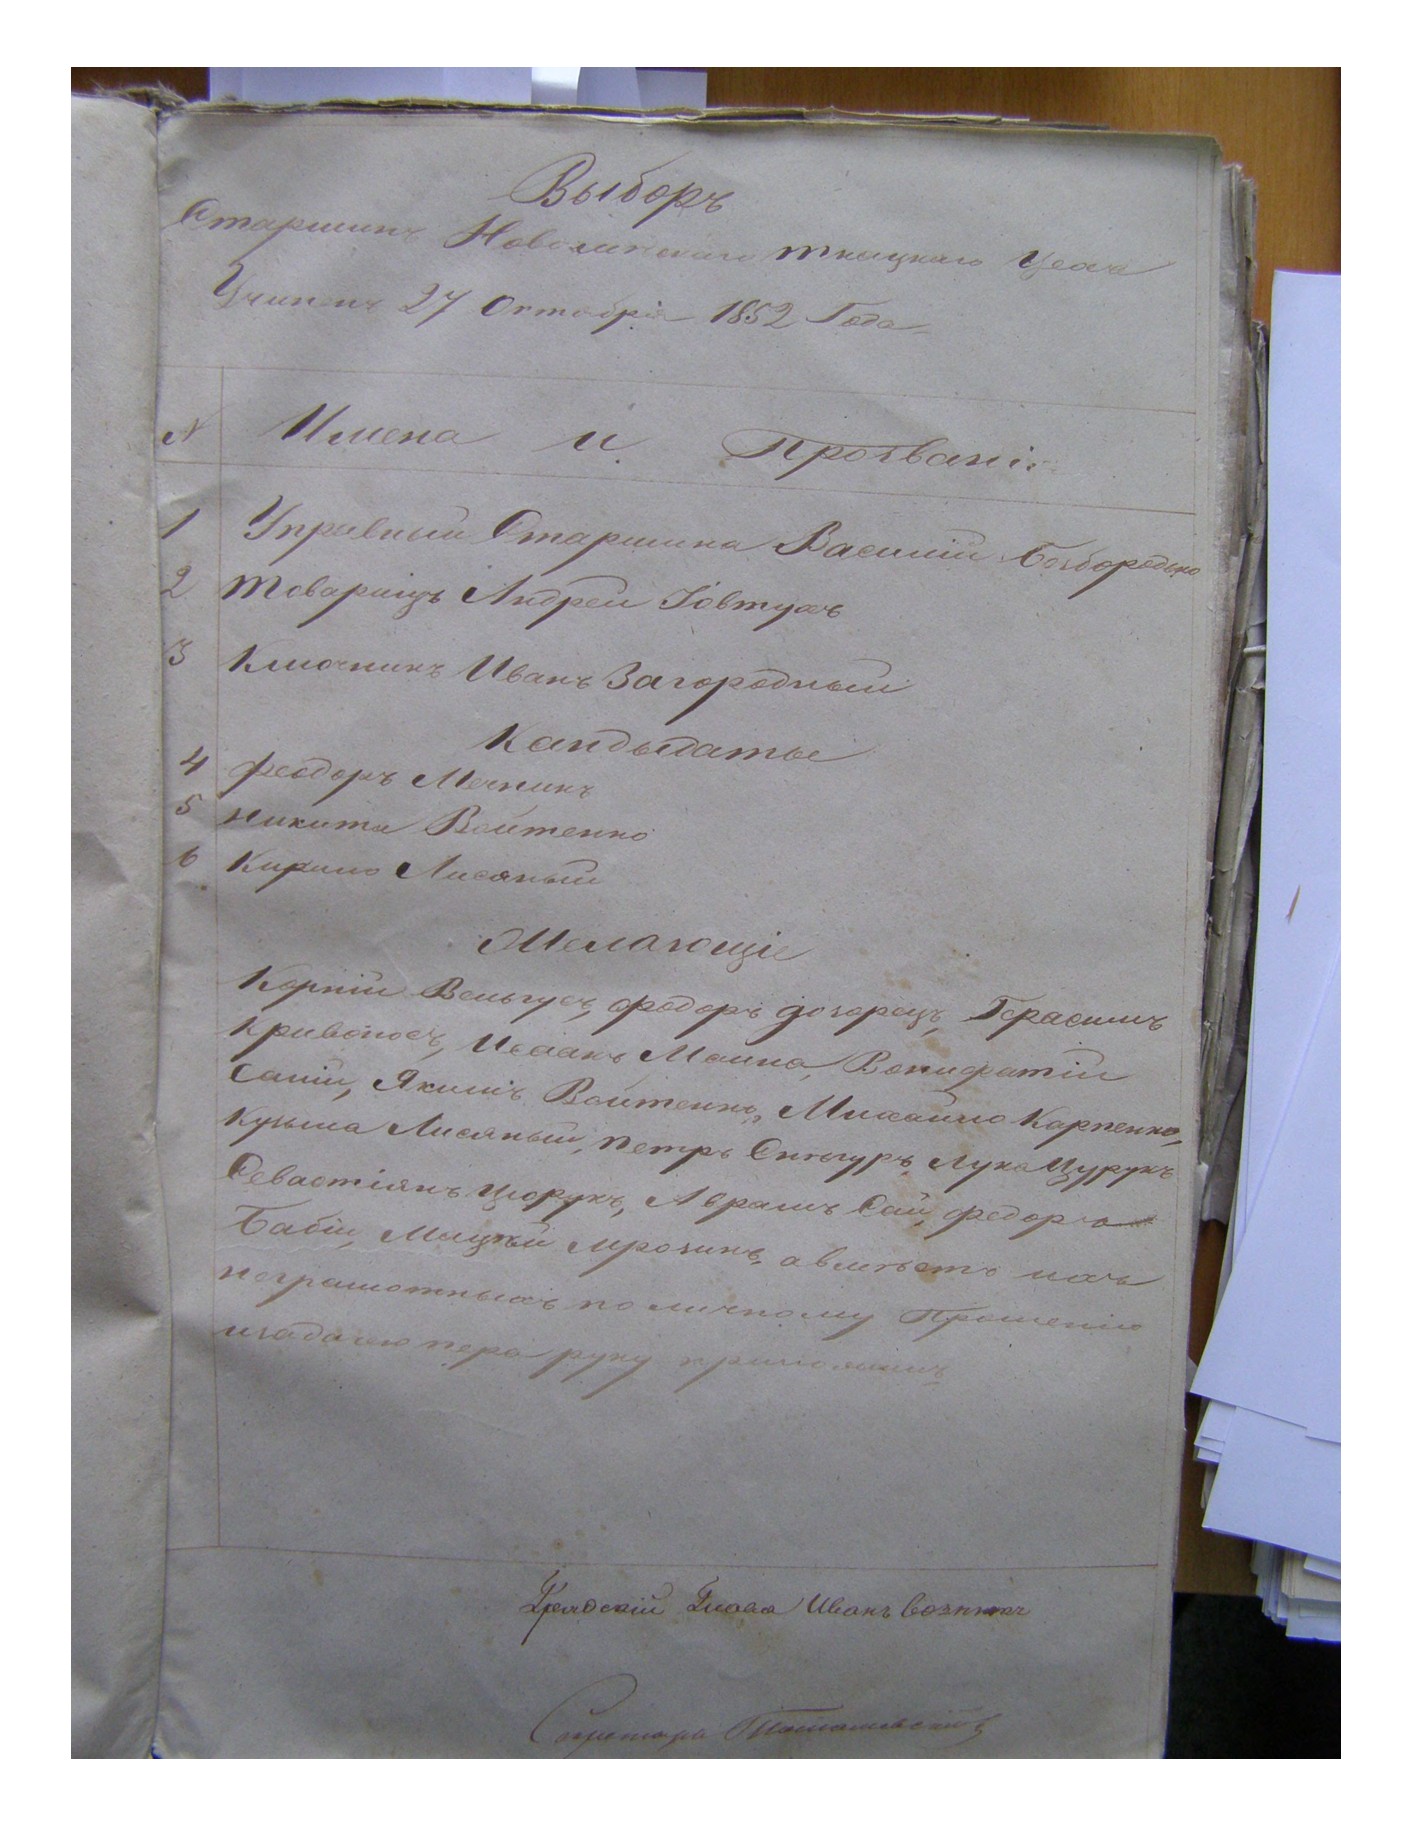 Выборъ
Старшинъ ткацкаго Цеха
Учиненъ 27 Октобрія 1852 Года
№ Имена и Прозванія
1 Управный Старшина Василій Безбородько
2 Товарищъ Андрей Іовтухъ
3 Ключникъ Иванъ Загородный
Кандыдаты
4 Феодоръ Мечникъ
5 Никита Войтенко
6 Кирило Лисяный
Желающіе
Корній Федоръ Дозорецъ, Герасимъ
Кривоносъ, Исаакъ Вонифатій
Якимъ Войтенко, Михайло Карпенко,
Кузьма Лисяный, Петръ Снѣгуръ, Лука Цурукъ
Севастіянъ Цюрукъ, Аврамъ Сай, Федоръ
Бабій, Мацѣй Мрозикъ, а вмѣсто ихъ
неграмотныхъ по личному Прошенію
издачею пера руку приложилъ
Градскій Глава Иванъ
Секретарь